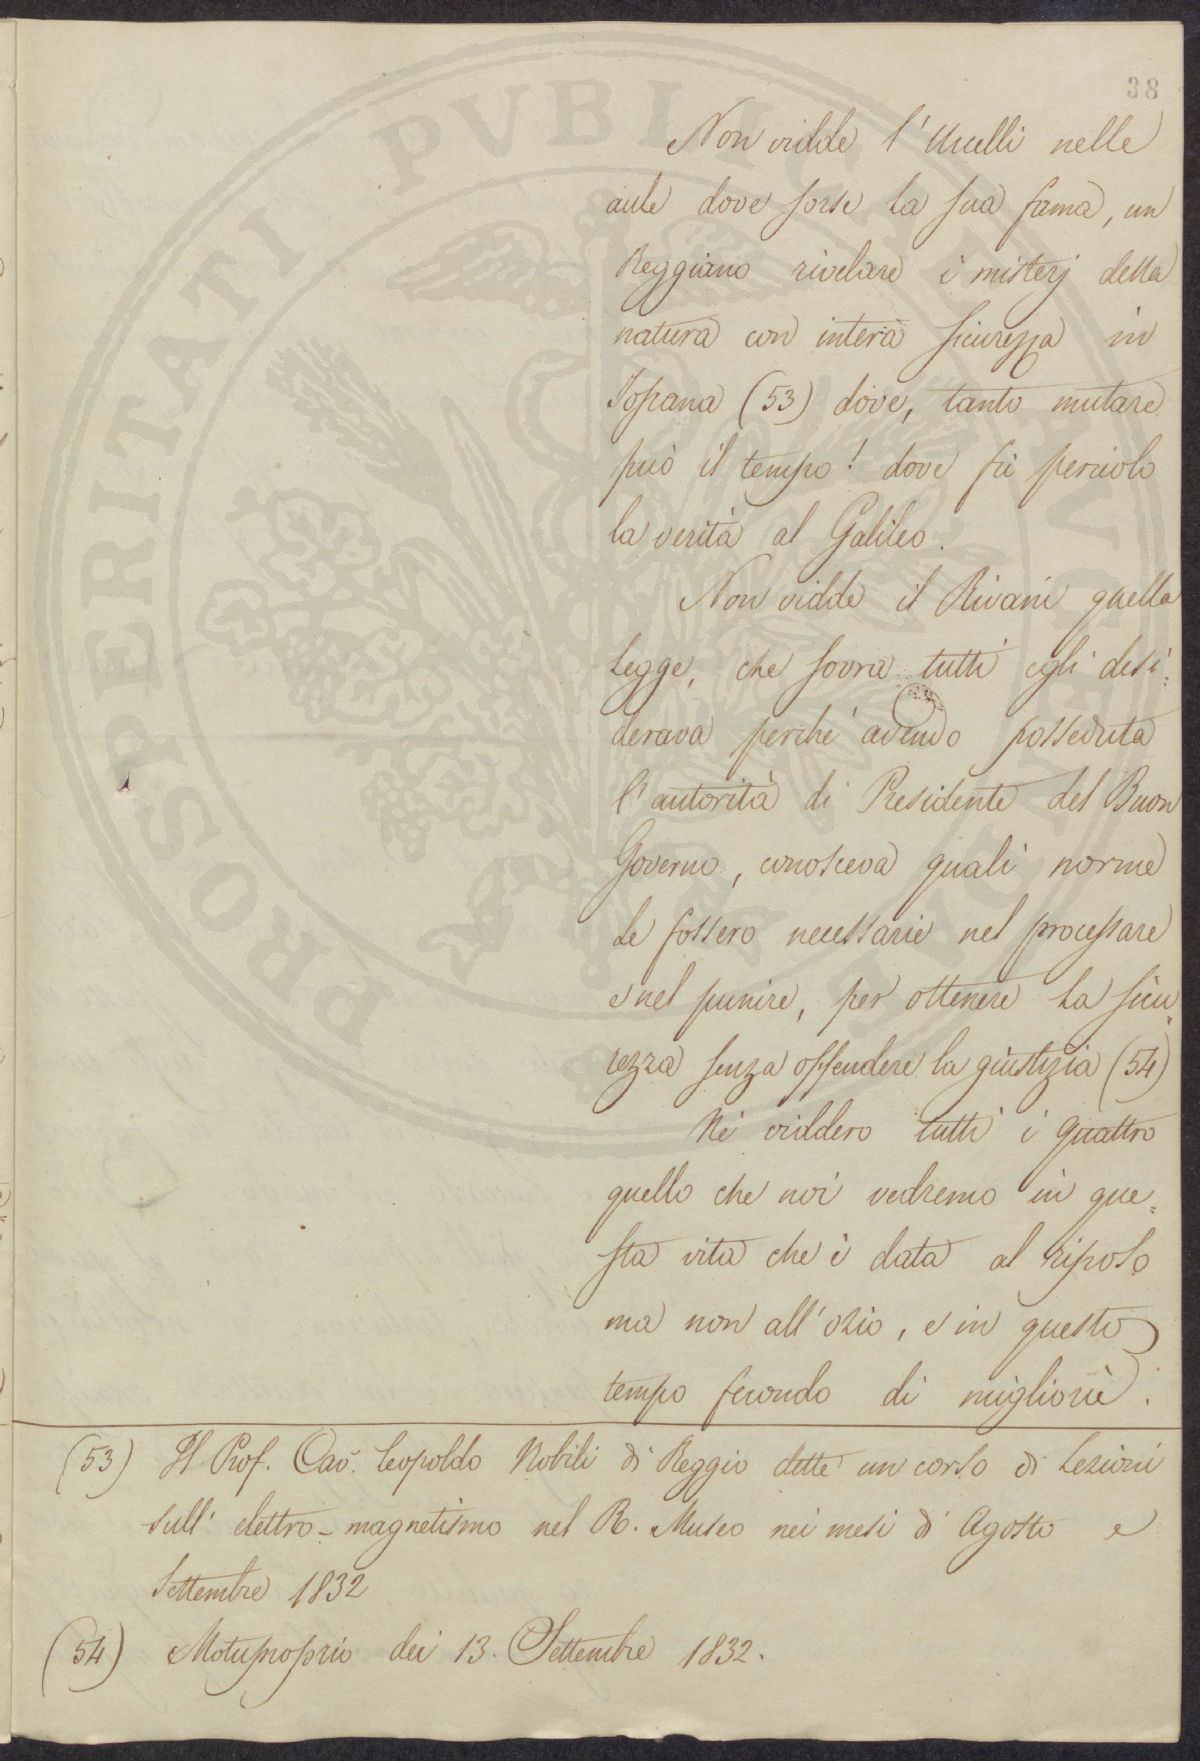 38
Non vidde l'Uccelli nelle
aule dove sorse la sua fama, un
Reggiano rivelare i misterj della
natura con intera sicurezza in
Toscana (53) dove, tanto mutare
può il tempo! dove fù pericolo
la verità al Galileo.
Non vidde il Rivani quella
Legge, che sovra tutti egli desi=
derava perché avendo posseduta
l'autorità di Presidente del Buon
Governo, conosceva quali norme
Le fossero necessarie nel processare
e nel punire, per ottenere la sicu=
rezza senza offendere la giustizia (54)
Né viddero tutti i quattro
quello che noi vedremo in que=
sta vita che è data al riposo
ma non all'ozio, e in questo
tempo fecondo di migliorie.
(53) Il Prof. Cav. Leopoldo Nobili di Reggio dette un corso di Lezioni
sull'elettro-magnetismo nel R. Museo nei mesi di Agosto e
Settembre 1832
(54) Motuproprio dei 13. Settembre 1832.
PROSPERITATI PVBLICAE AVGENDAE